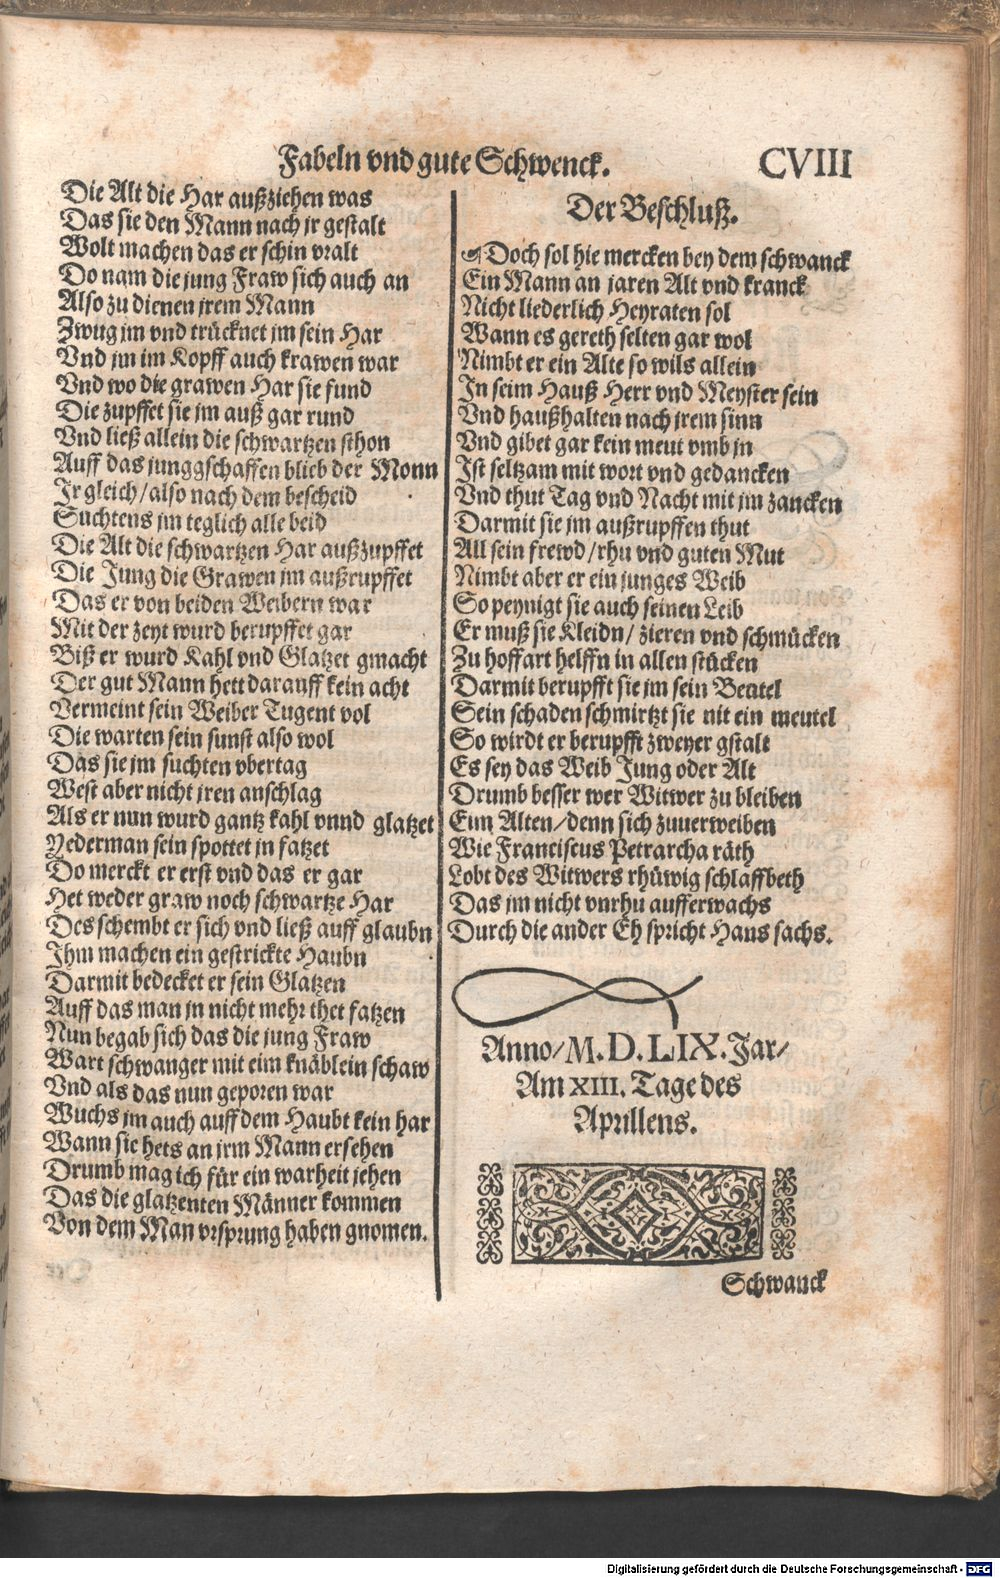 Fabeln vnd gute Schwenck. CVIII
Die Alt die Har außziehen was
Das sie den Mann nach jr gestalt
Wolt machen das er schin vralt
Do nam die jung Fraw sich auch an
Also zu dienen jrem Mann
Zwug jm vnd trücknet jm sein Har
Vnd jm im Kopff auch krawen war
Vnd wo die grawen Har sie fund
Die zupffet sie jm auß gar rund
Vnd ließ allein die schwartzen sthon
Auff das junggschaffen blieb der Monn
Jr gleich/also nach dem bescheid
Suchtens jm teglich alle beid
Die Alt die schwartzen Har außzupffet
Die Jung die Grawen jm außrupffet
Das er von beiden Weibern war
Mit der zeyt wurd berupffet gar
Biß er wurd Kahl vnd Glatzet gmacht
Der gut Mann hett darauff kein acht
Vermeint sein Weiber Tugent vol
Die warten sein sunst also wol
Das sie jm suchten vbertag
West aber nicht jren anschlag
Als er nun wurd gantz kahl vnnd glatzet
Yederman sein spottet jn fatzet
Do merckt er erst vnd das er gar
Het weder graw noch schwartze Har
Des schembt er sich vnd ließ auff glaubn
Jhm machen ein gestrickte Haubn
Darmit bedecket er sein Glatzen
Auff das man jn nicht mehr thet fatzen
Nun begab sich das die jung Fraw
Wart schwanger mit eim knäblein schaw
Vnd als das nun geporen war
Wuchs jm auch auff dem Haubt kein har
Wann sie hets an jrm Mann ersehen
Drumb mag ich für ein warheit jehen
Das die glatzenten Männer kommen
Von dem Man vrsprung haben gnomen.
Der Beschluß.
☙Doch sol hie mercken bey dem schwanck
Ein Mann an jaren Alt vnd kranck
Nicht liederlich Heyraten sol
Wann es gereth selten gar wol
Nimbt er ein Alte so wils allein
Jn seim Hauß Herr vnd Meyster sein
Vnd haußhalten nach jrem sinn
Vnd gibet gar kein meut vmb jn
Jst seltzam mit wort vnd gedancken
Vnd thut Tag vnd Nacht mit jm zancken
Darmit sie jm außrupffen thut
All sein frewd/rhu vnd guten Mut
Nimbt aber er ein junges Weib
So peynigt sie auch seinen Leib
Er muß sie Kleidn/ zieren vnd schmücken
Zu hoffart helffn in allen stücken
Darmit berupfft sie jm sein Beutel
Sein schaden schmirtzt sie nit ein meutel
So wirdt er berupfft zweyer gstalt
Es sey das Weib Jung oder Alt
Drumb besser wer Witwer zu bleiben
Eim Alten/denn sich zuuerweiben
Wie Franciscus Petrarcha räth
Lobt des Witwers rhüwig schlaffbeth
Das jm nicht vnrhu aufferwachs
Durch die ander Eh spricht Hans sachs.
Anno/M.D.LIX.Jar/
Am XIII. Tage des
Aprillens.
Schwanck
Digitalisierung gefördert durch die Deutsche Forschungsgemeinschaft - DFG